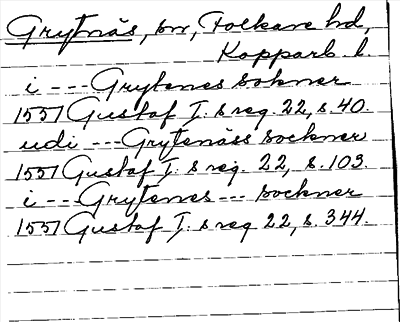 Grytnäs, sn, Folkare hd,
Kopparb. l.
i --- Grytenes sokner
1557 Gustaf I. s reg. 22, s. 40.
udi --- Grytenäss sockner
1557 Gustaf I. s reg. 22, s. 103.
i --- Grytenes --- sockner
1557 Gustaf I. s reg 22, s. 344.